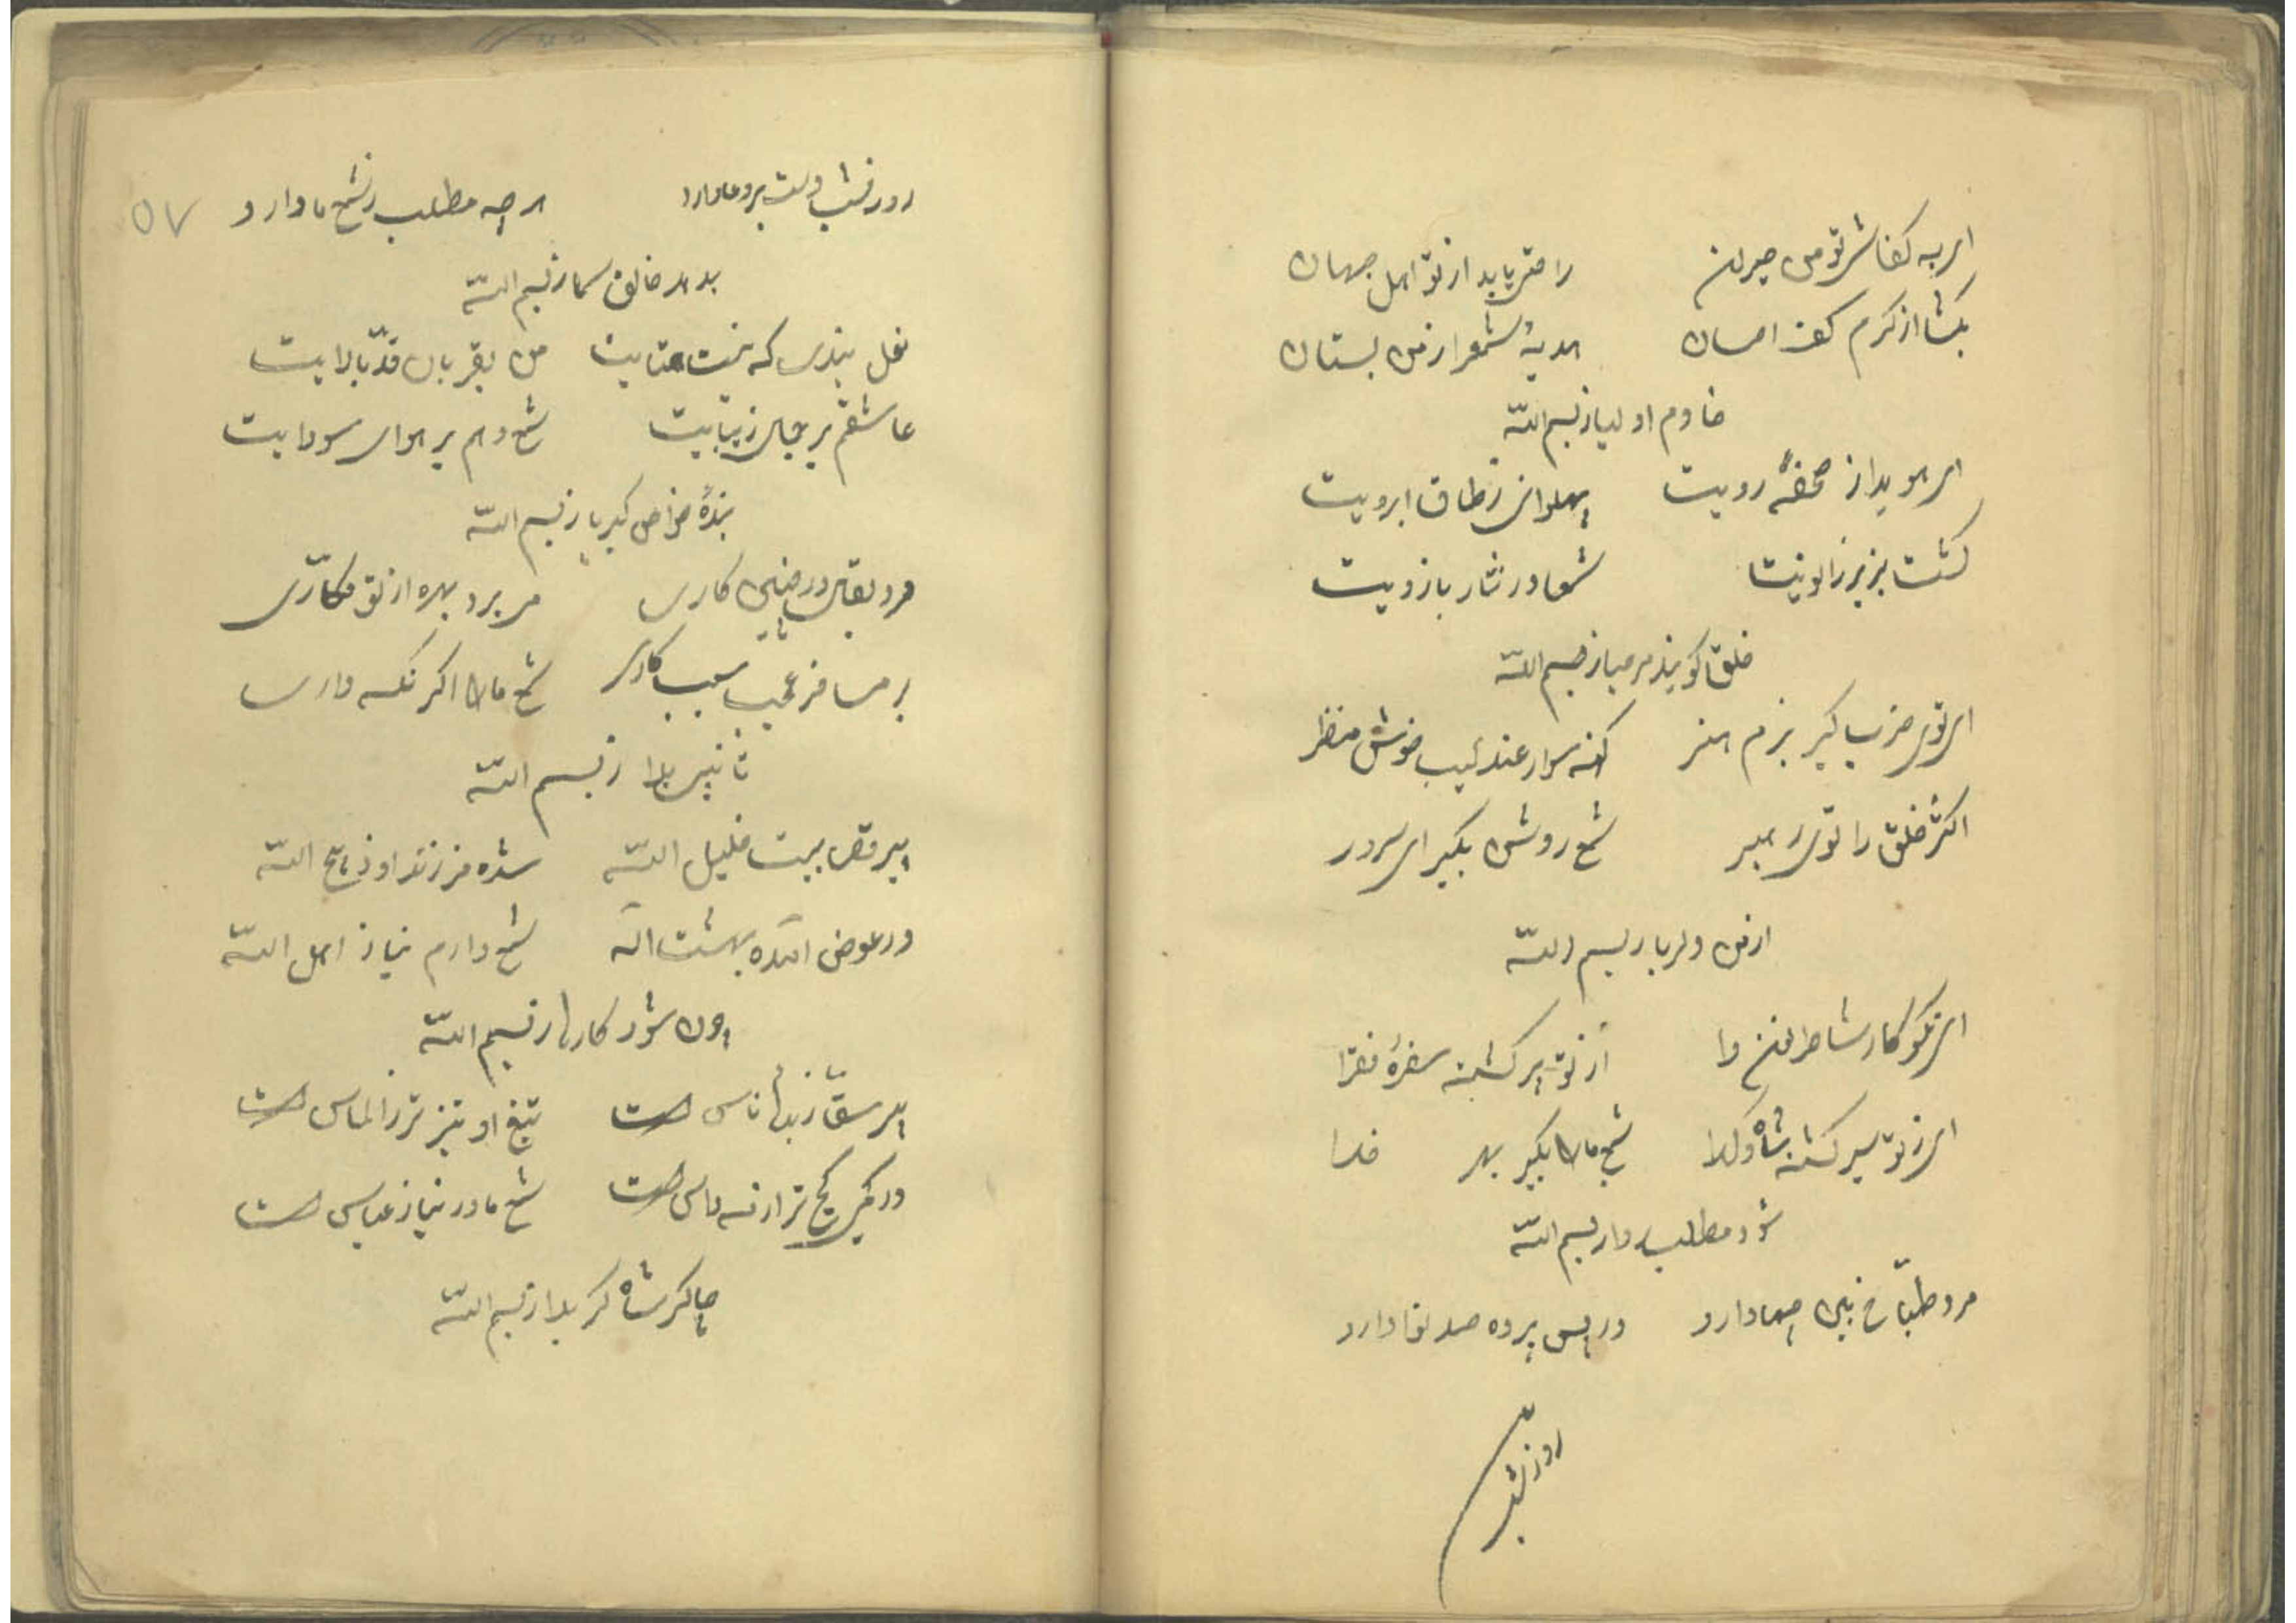 ای به کفاشی تو من حیران راحتی یابد از تو اهل جهان
بگشا از کرم کف احسان هدیهٔ شمع از من بستان
خادم اولیا ز بسم الله
ای هویدا ز صحفهٔ رویت پهلوانی ز طاق ابرویت
گشت بزیر زانویت شمعها در نثار بازویت
خلق گویند مرحبا ز بسم الله
ای توی ضرب گیر بزم هنر کهنه سوار عندلیب خوش منظر
اکثر خلق را توی رهبر شمع روشن بگیر ای سرور
از من دلربا ز بسم الله
ای نکو کار شاطر از تو پر گشته سفرهٔ فقرا
ای ز تو سیر گشته شاه و گدا شمع ما را بگیر بهر خدا
شود مطلب روا ز بسم الله
مرد طباخ بین چها دارد در پس پرده صد نوا دارد
روز و شب
روز و شب دست بر دعا دارد هر چه مطلب ز شمع ما دارد
۵۷
بدهد خالق سما ز بسم الله
نعل بندی که نیست همتایت من بقربان قد بالایت
عاشقم بر جمال زیبایت شمع دهم بر هوای سودایت
بندهٔ خواص کبریا ز بسم الله
مرد بقال در چنین کاری می برد بهره از تو مکاری
بر مسافر عجب سبب کاری شمع ما را اگر نگه داری
ز بسم الله
پیر قصاب بیت خلیل الله شده فرزند او ذبیح الله
در عوض آمده بهشت اله شمع دارم نیاز اهل الله
چون شود کارها ز بسم الله
پیر سقا زبدهٔ ناس است تیغ او تیز تر ز الماس است
در کمر کج تر از نه داس است شمع ما در نیاز عباس است
چاکر شاه کربلا ز بسم الله